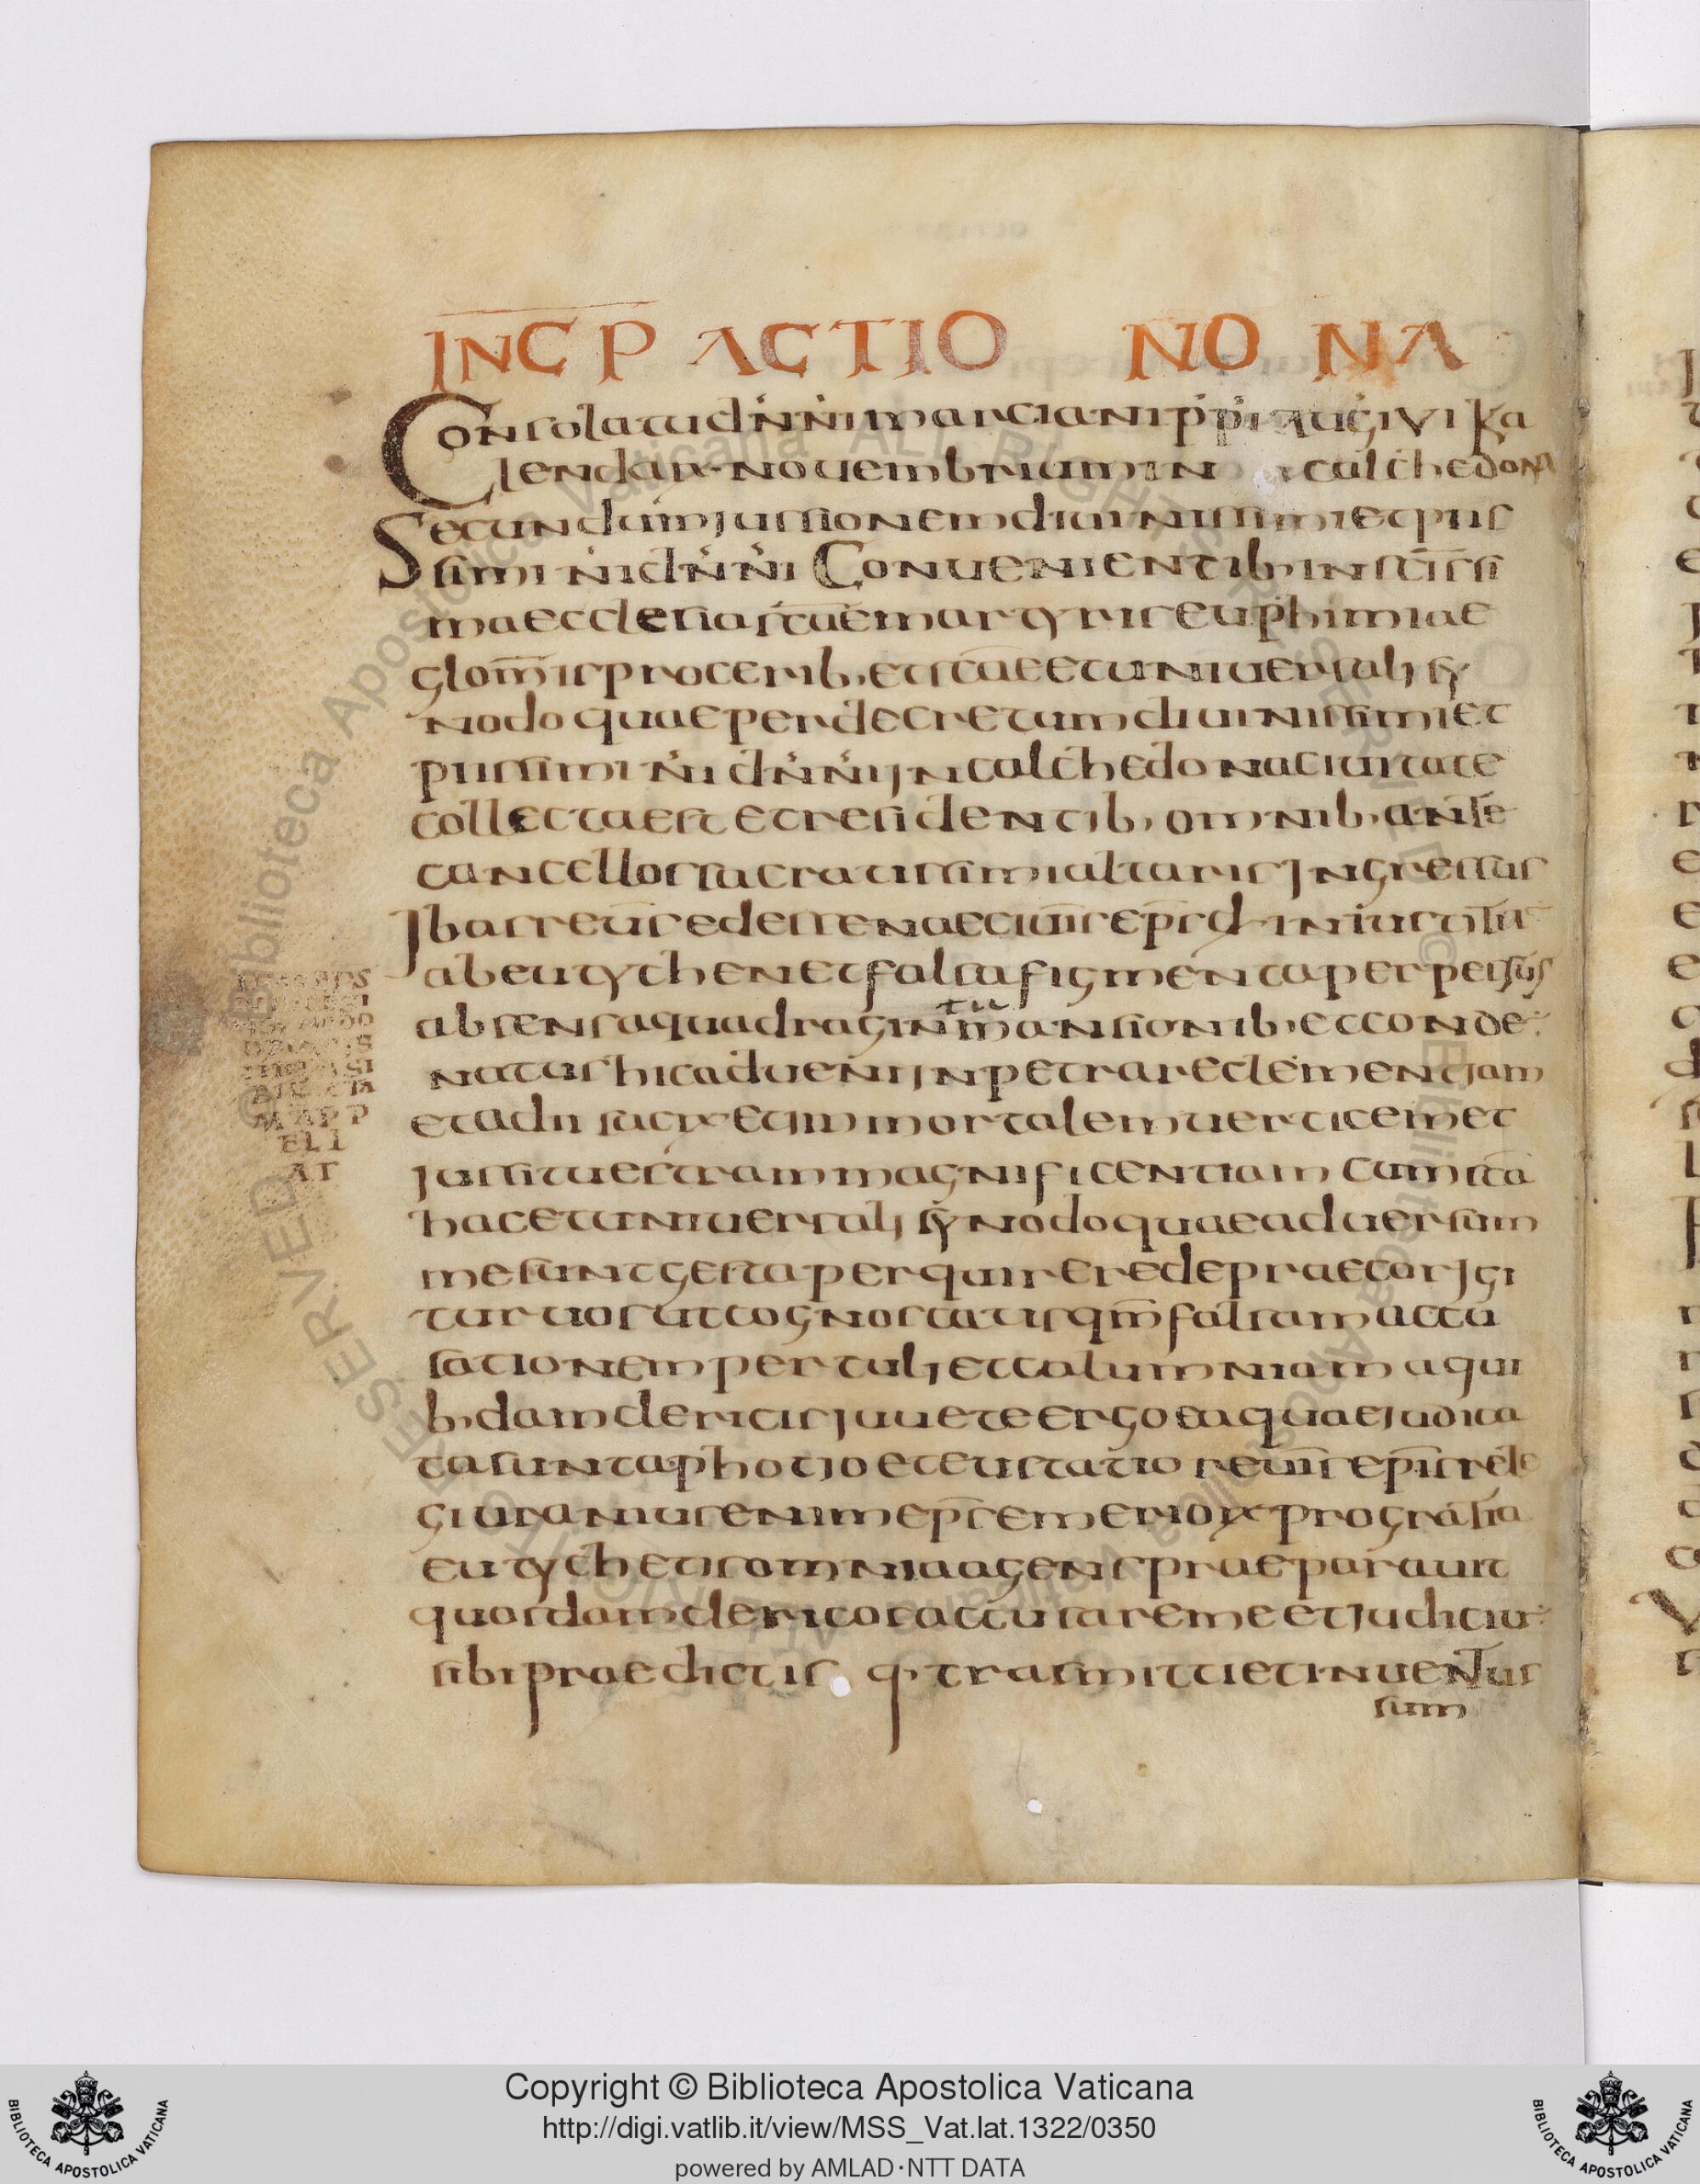 INCP ACTIO NONA
Consolatu dn̄i n̄i marciani pp̄ aug VI ka
lendar novembrium in calchedona
Secundum jussionem divinissimi et piis
simi n̄i dn̄i n̄i Convenientib, in sc̄issi
ma ecclesia sc̄ae martyris euphimiae
glom̄is procerib, et sc̄ae et universali sy
nodo quae per decretum divinissimi et
piissimi n̄i dn̄i n̄i jn calchedona civitate
collecta est et residentib, omnib, ante
cancellos sacratissimi altaris jngressus
Jbas rev̄s edessenae civit̄ ep̄s dx iniustitia
ab eutychen et falsa figmenta perpessus
absens a quadraginta mansionib, et conde
natus hic adveni jnpetrare clementiam
et adii sacr et inmortalem verticem et
jussit vestram magnificentiam cum sc̄a
hac et universali synodo quae adversum
me sunt gesta perquirere deprecor jgi
tur vos ut cognoscatis qm̄ falsam accu
sationem pertuli et calumniam a qui
b,dam clericis juvete ergo ea quae judica
ta sunt a photjo et eustatio rev̄is ep̄is rele
gi uranius enim ep̄s emerior pro gratia
eutychetis omnia agens praeparavit
quosdam clericos accusare me et judiciu
sibi praedictis q, trasmitti et inventus
sum
ELI
AT
Copyright © Biblioteca Apostolica Vaticana
http://digi.vatlib.it/view/MSS_Vat.lat.1322/0350
powered by AMLAD·NTT DATA
BIBLIOTECA APOSTOLICA VATICANA
BIBLIOTECA APOSTOLICA VATICANA